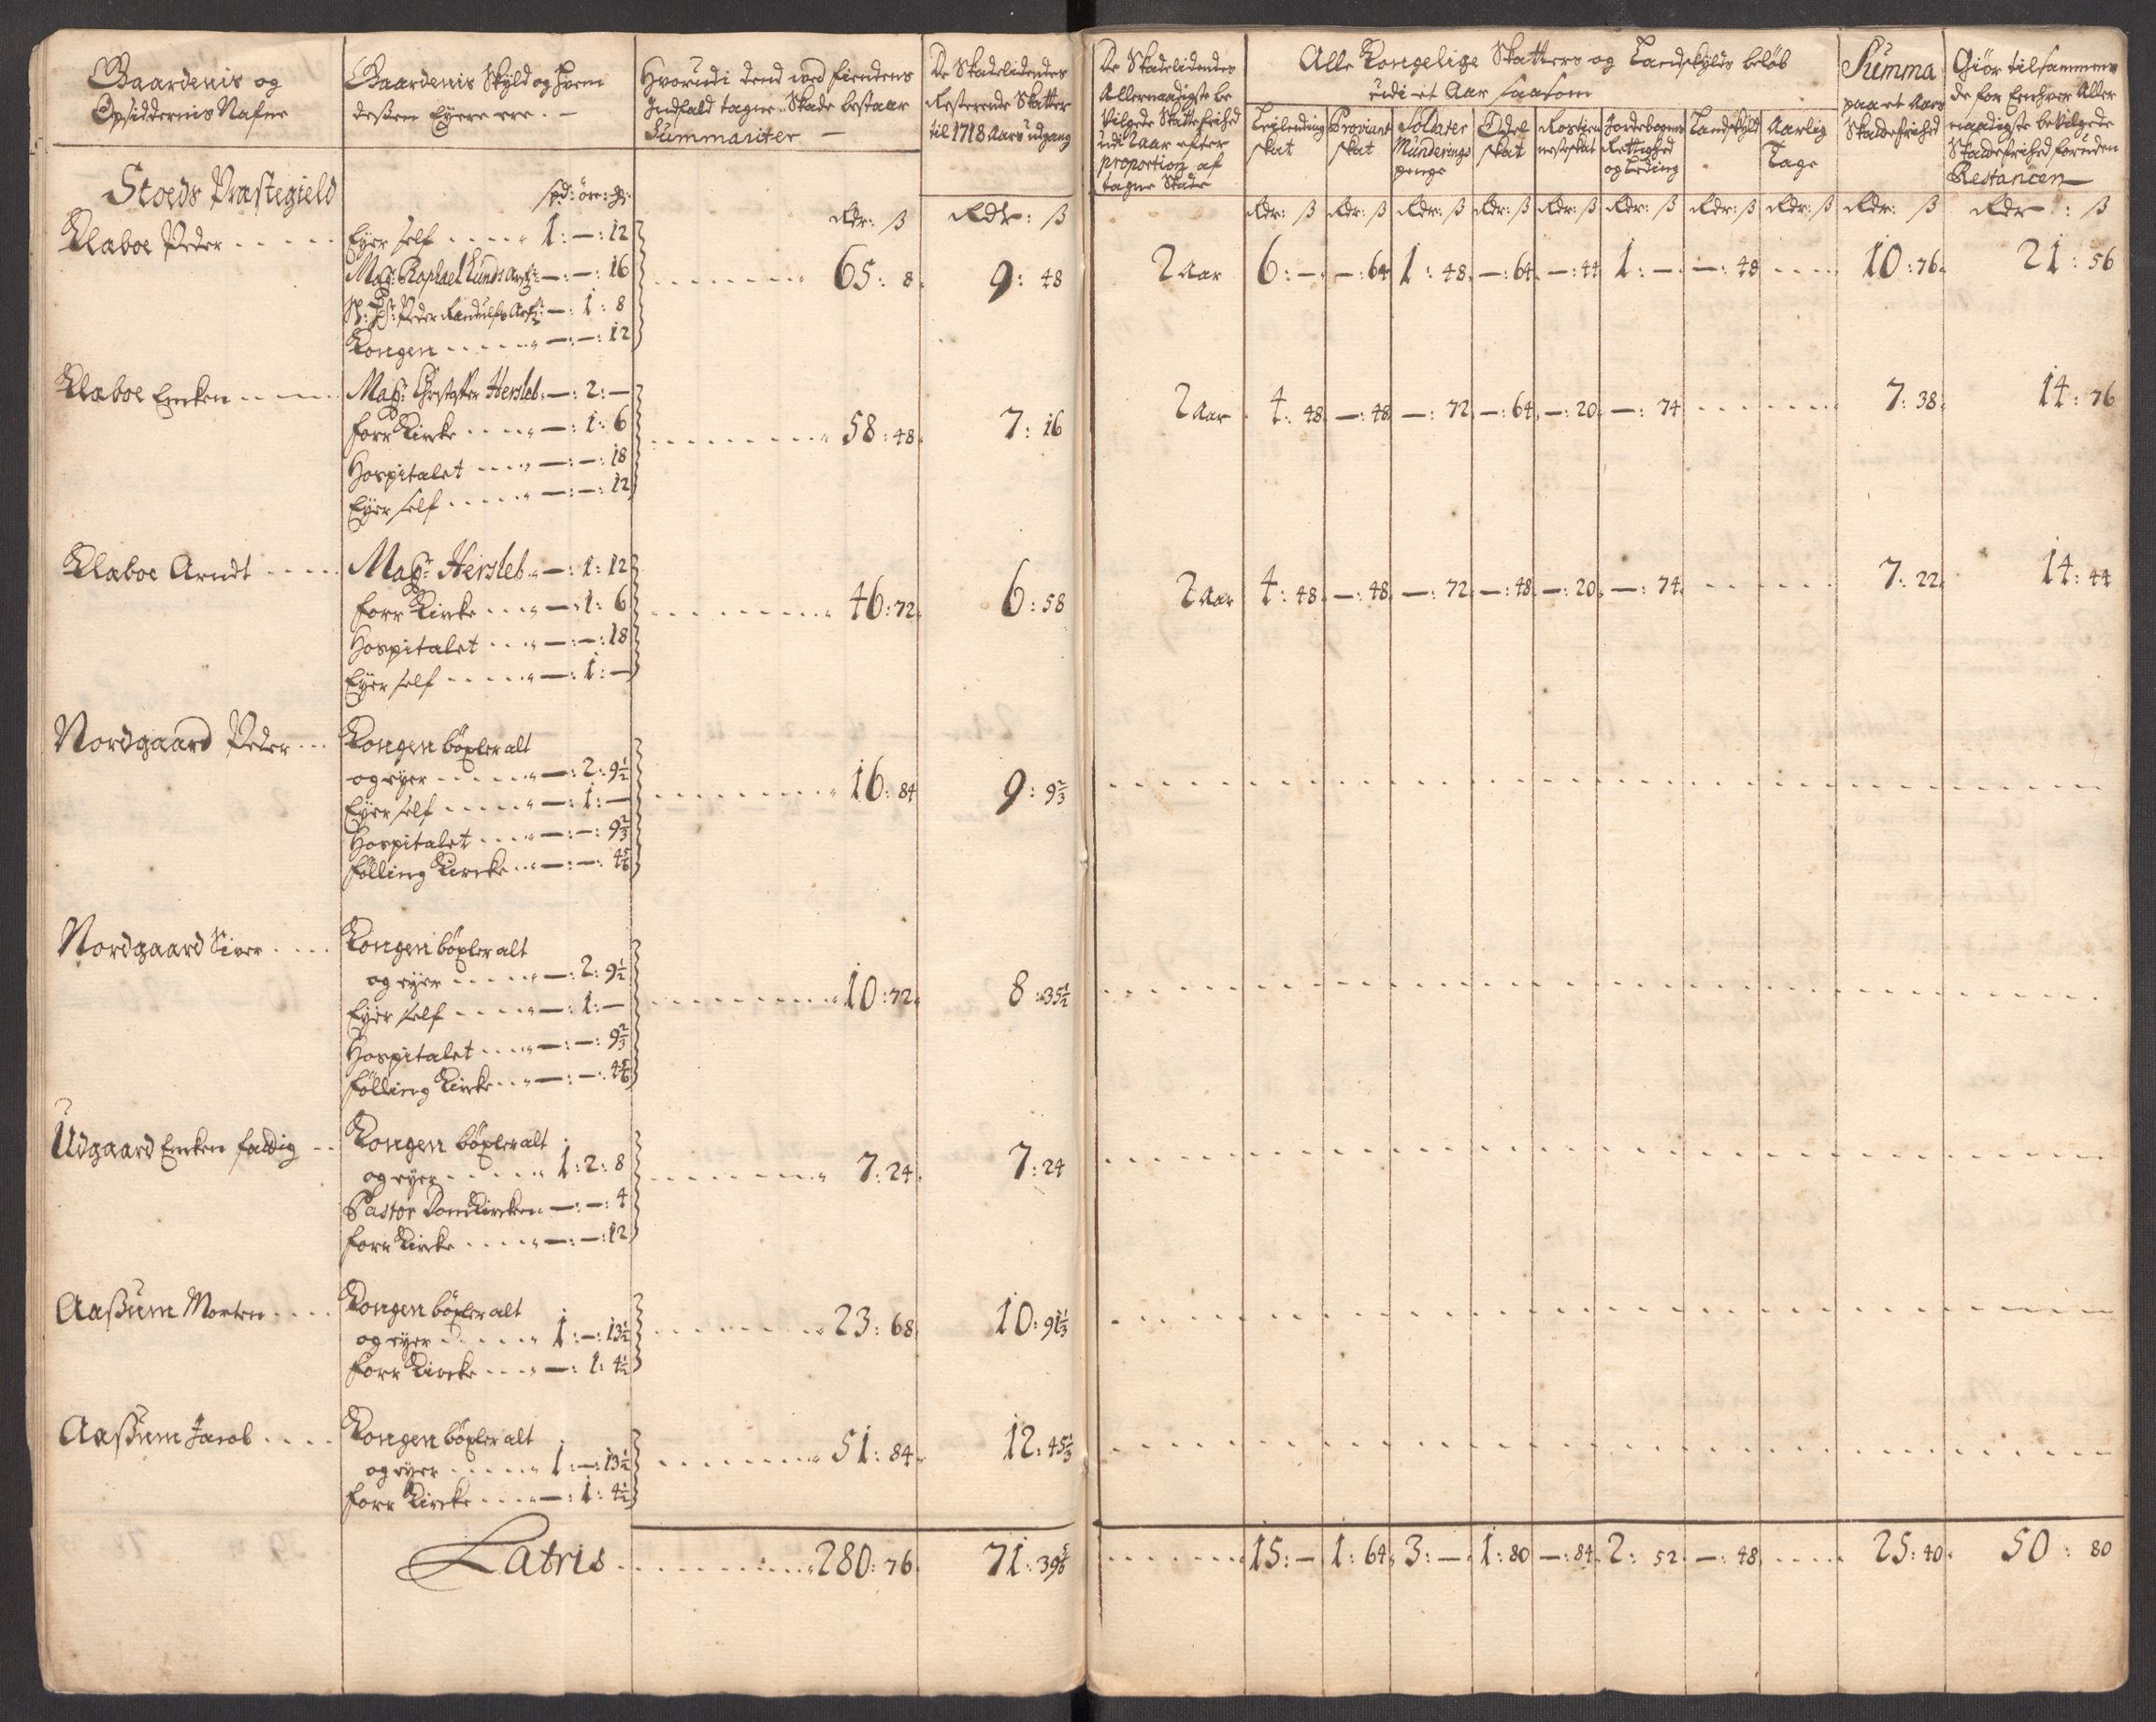 Gaardenis og
Opsiddernis Nafne
Gaardenis Skÿld og hvem
deßen Eyere ere. —
Hvorudi dend wed fiendens
Indfald tagne Skade bestaar
Summariter —
De Skadelidendes
Resterende Skatter
til 1718 Aars udgang
De Skadelidendes
Allernaadigste be
vilgede Skattefrihed
udi Aar efter
proportion af
tagne Skade
Alle Kongelige Skatters og Landskÿlds beløb
udi et Aar saasom
Leylending
skat
Proviant
skat
Soldater
Münderings
penge
Odel
skat
Rostien
nesteskat
Jordebogens
Rettighed
og Leding
Landskÿld
Aarlig
Tage
Summa
paa et Aars
Skattefrihed
Giør tilsammen
de for Enhver Aller
naadigste beVilgede
Skattefrihed foruden
Restancen
Stoeds Præstegield
spd: öre: gr:
Rdr: ß
Rdr: ß
Rdr: ß Rdr: ß Rdr: ß Rdr: ß Rdr: ß Rdr: ß Rdr: ß Rdr: ß Rdr: ß Rdr: ß
Klæboe Peder
Eyer self 1: —: 12
Mag: Raphael Lunds Arf: —: —: 16
Sl: Hr: Peder Randulfs Arf: —: 1: 8
Kongen —: —: 12
65: 8
9: 48
2 Aar 6: — —: 64 1: 48 —: 64 —: 44 1: — —: 48 10: 76 21: 56
Klæboe Enken
Mag: Christopher Hersleb —: 2: —
forr Kircke —: 1: 6
Hospitalet —: —: 18
Eyer self —: —: 12
58: 48
7: 16
2 Aar 4: 48 —: 48 —: 72 —: 64 —: 20 —: 74 7: 38 14: 76
Klæboe Arndt
Mag: Hersleb —: 1: 12
forr Kircke —: 1: 6
Hospitalet —: —: 18
Eyer self —: 1: —
46: 72
6: 58
2 Aar 4: 48 —: 48 —: 72 —: 48 —: 20 —: 74 7: 22 14: 44
Nordgaard Peder
Kongen bøxler alt
og eyer —: 2: 9½
Eyer self —: 1: —
Hospitalet —: —: 9⅔
følling Kircke —: —: 4⅚
16: 84
9: 9⅔
Nordgaard Siver
Kongen bøxler alt
og eyer —: 2: 9½
Eyer self —: 1: —
Hospitalet —: —: 9⅔
følling Kircke —: —: 4⅚
10: 72
8: 35½
Udgaard Enken fattig
Kongen bøxler alt
og eyer 1: 2: 8
Pastor DomKircken —: —: 4
forr Kircke —: —: 12
7: 24
7: 24
Aaßum Morten
Kongen bøxler alt
og eyer 1: —: 13½
forr Kircke —: 1: 4½
23: 68
10: 91⅓
Aaßum Jacob
Kongen bøxler alt
og eyer 1: —: 13½
forr Kircke —: 1: 4½
51: 84
12: 45⅓
Latris 280: 76
71: 39⅚
15: — 1: 64 3: — 1: 80 —: 84 2: 52 —: 48 25: 40 50: 80